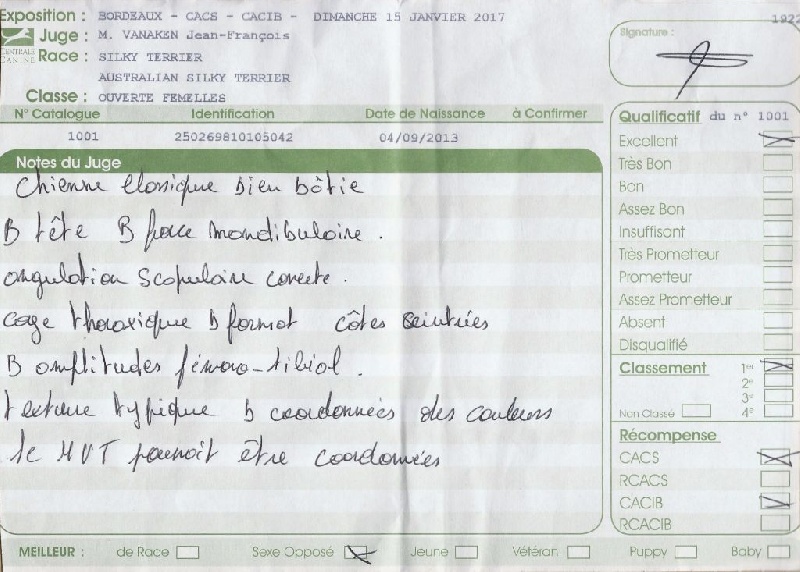 Exposition : BORDEAUX - CACS - CACIB - DIMANCHE 15 JANVIER 2017
1922
Juge : M. VANAKEN Jean-François
CENTRALE CANINE
Race : SILKY TERRIER
AUSTRALIAN SILKY TERRIER
Classe : OUVERTE FEMELLES
Signature :
N° Catalogue Identification Date de Naissance à Confirmer
1001 250269810105042 04/09/2013
Notes du Juge
Chienne classique bien bâtie
B tête B force mandibulaire.
angulation scapulaire correcte.
cage thoraxique B format côtes ceintrées
B amplitudes fémoro-tibial.
texture typique B coordonnées des couleurs
le HVT pourrait être coordonnées
Qualificatif du n° 1001
Excellent
Très Bon
Bon
Assez Bon
Insuffisant
Très Prometteur
Prometteur
Assez Prometteur
Absent
Disqualifié
Classement 1er
2e
3e
Non Classé 4e
Récompense
CACS
RCACS
CACIB
RCACIB
MEILLEUR : de Race Sexe Opposé Jeune Vétéran Puppy Baby